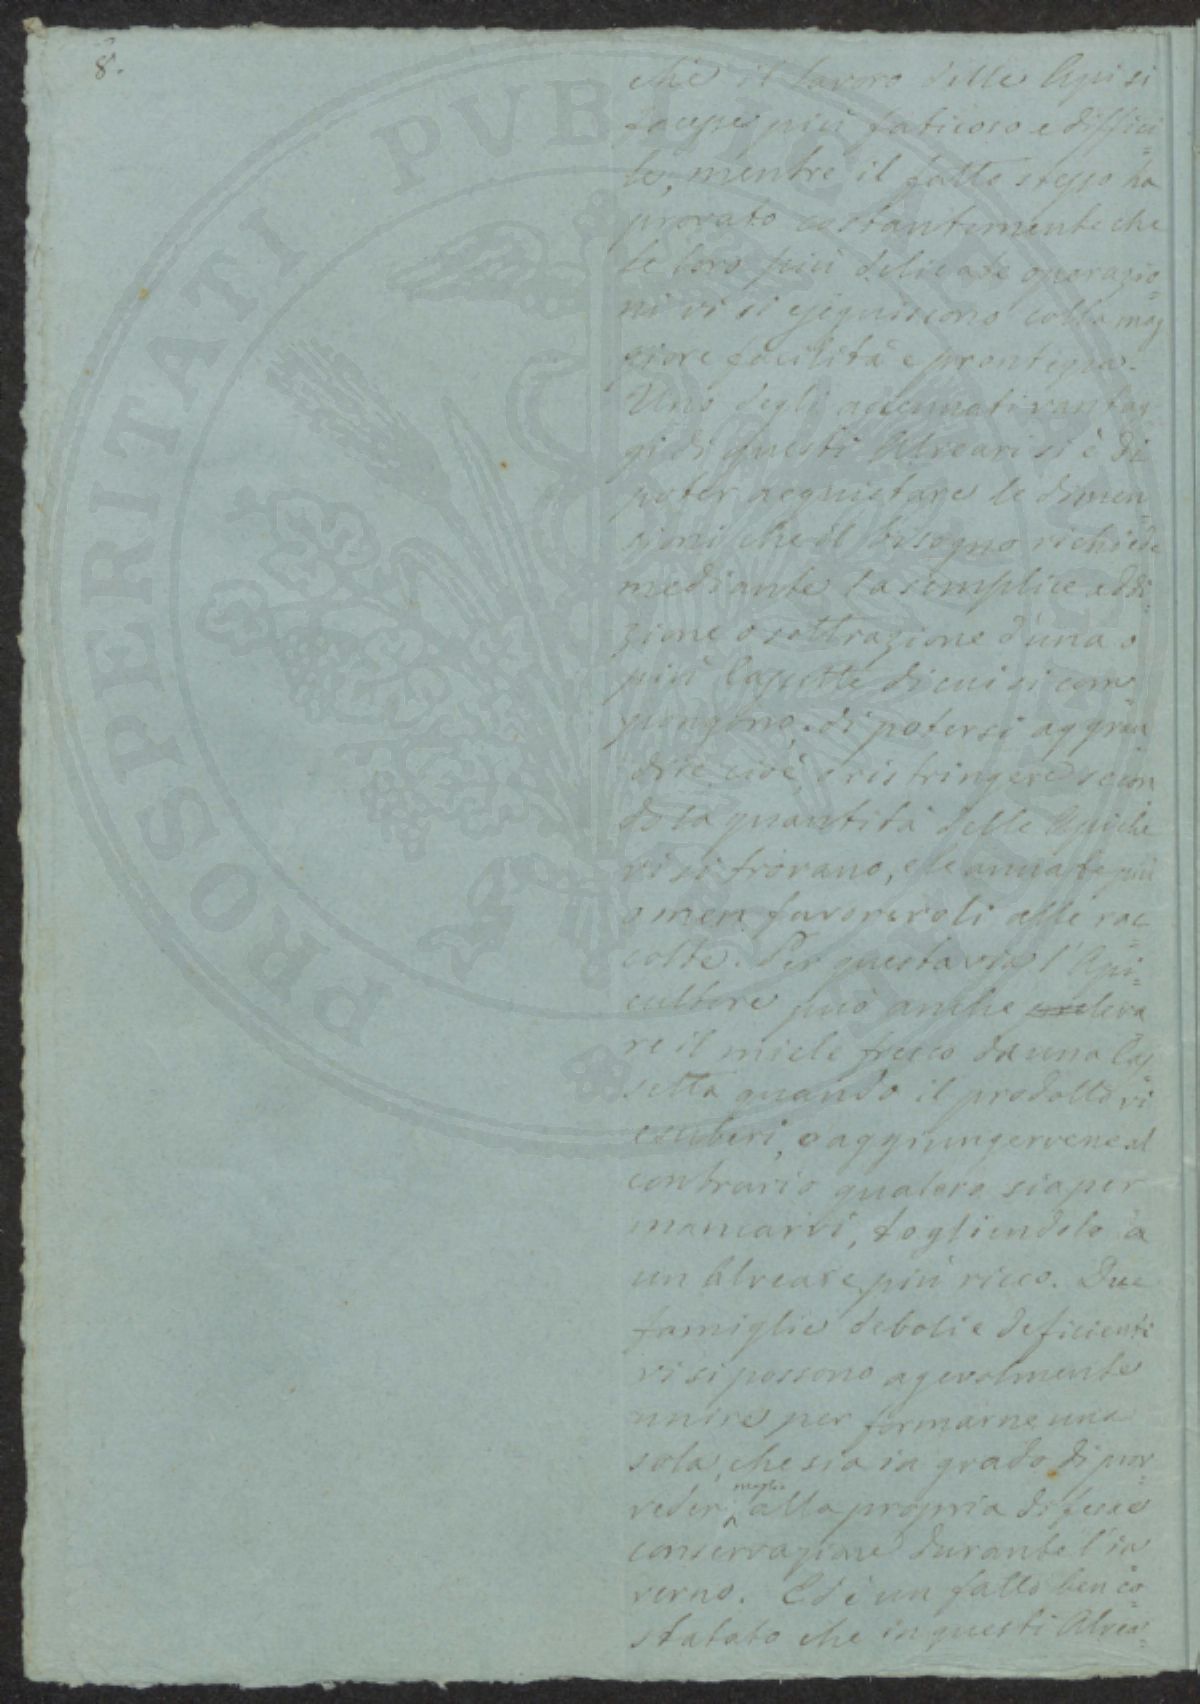 8.
che il lavoro delle Api si
facesse più faticoso e diffici=
le, mentre il fatto stesso ha
provato costantemente che
le loro più delicate operazio=
ni vi si eseguiscono colla mag
giore facilità e prontezza.
Uno degli accennati vantag
gi di questi Alveari si è di
poter acquistare le dimen=
sioni che il bisogno richiede
mediante la semplice addi=
zione o sottrazione d'una o
più Cassette di cui si com
pongono; di potersi aggran
dire cioè, o ristringere secon
do la quantità delle Api che
vi si trovano, e le annate più
o men favorevoli alle rac=
colte. Per questa via l'Api=
cultore può anche leva
re il miele fresco da una Cas
setta quando il prodotto vi
esuberi, o aggiungervene al
contrario qualora sia per
mancarvi, togliendolo a
un Alveare più ricco. Due
famiglie deboli e deficienti
vi si possono agevolmente
unire per formarne una
sola, che sia in grado di prov=
veder meglio alla propria difesa e
conservazione durante l'in
verno. Ed è un fatto ben co=
statato che in questi Alvea=
PROSPERITATI PUBLICAE AUGENDAE